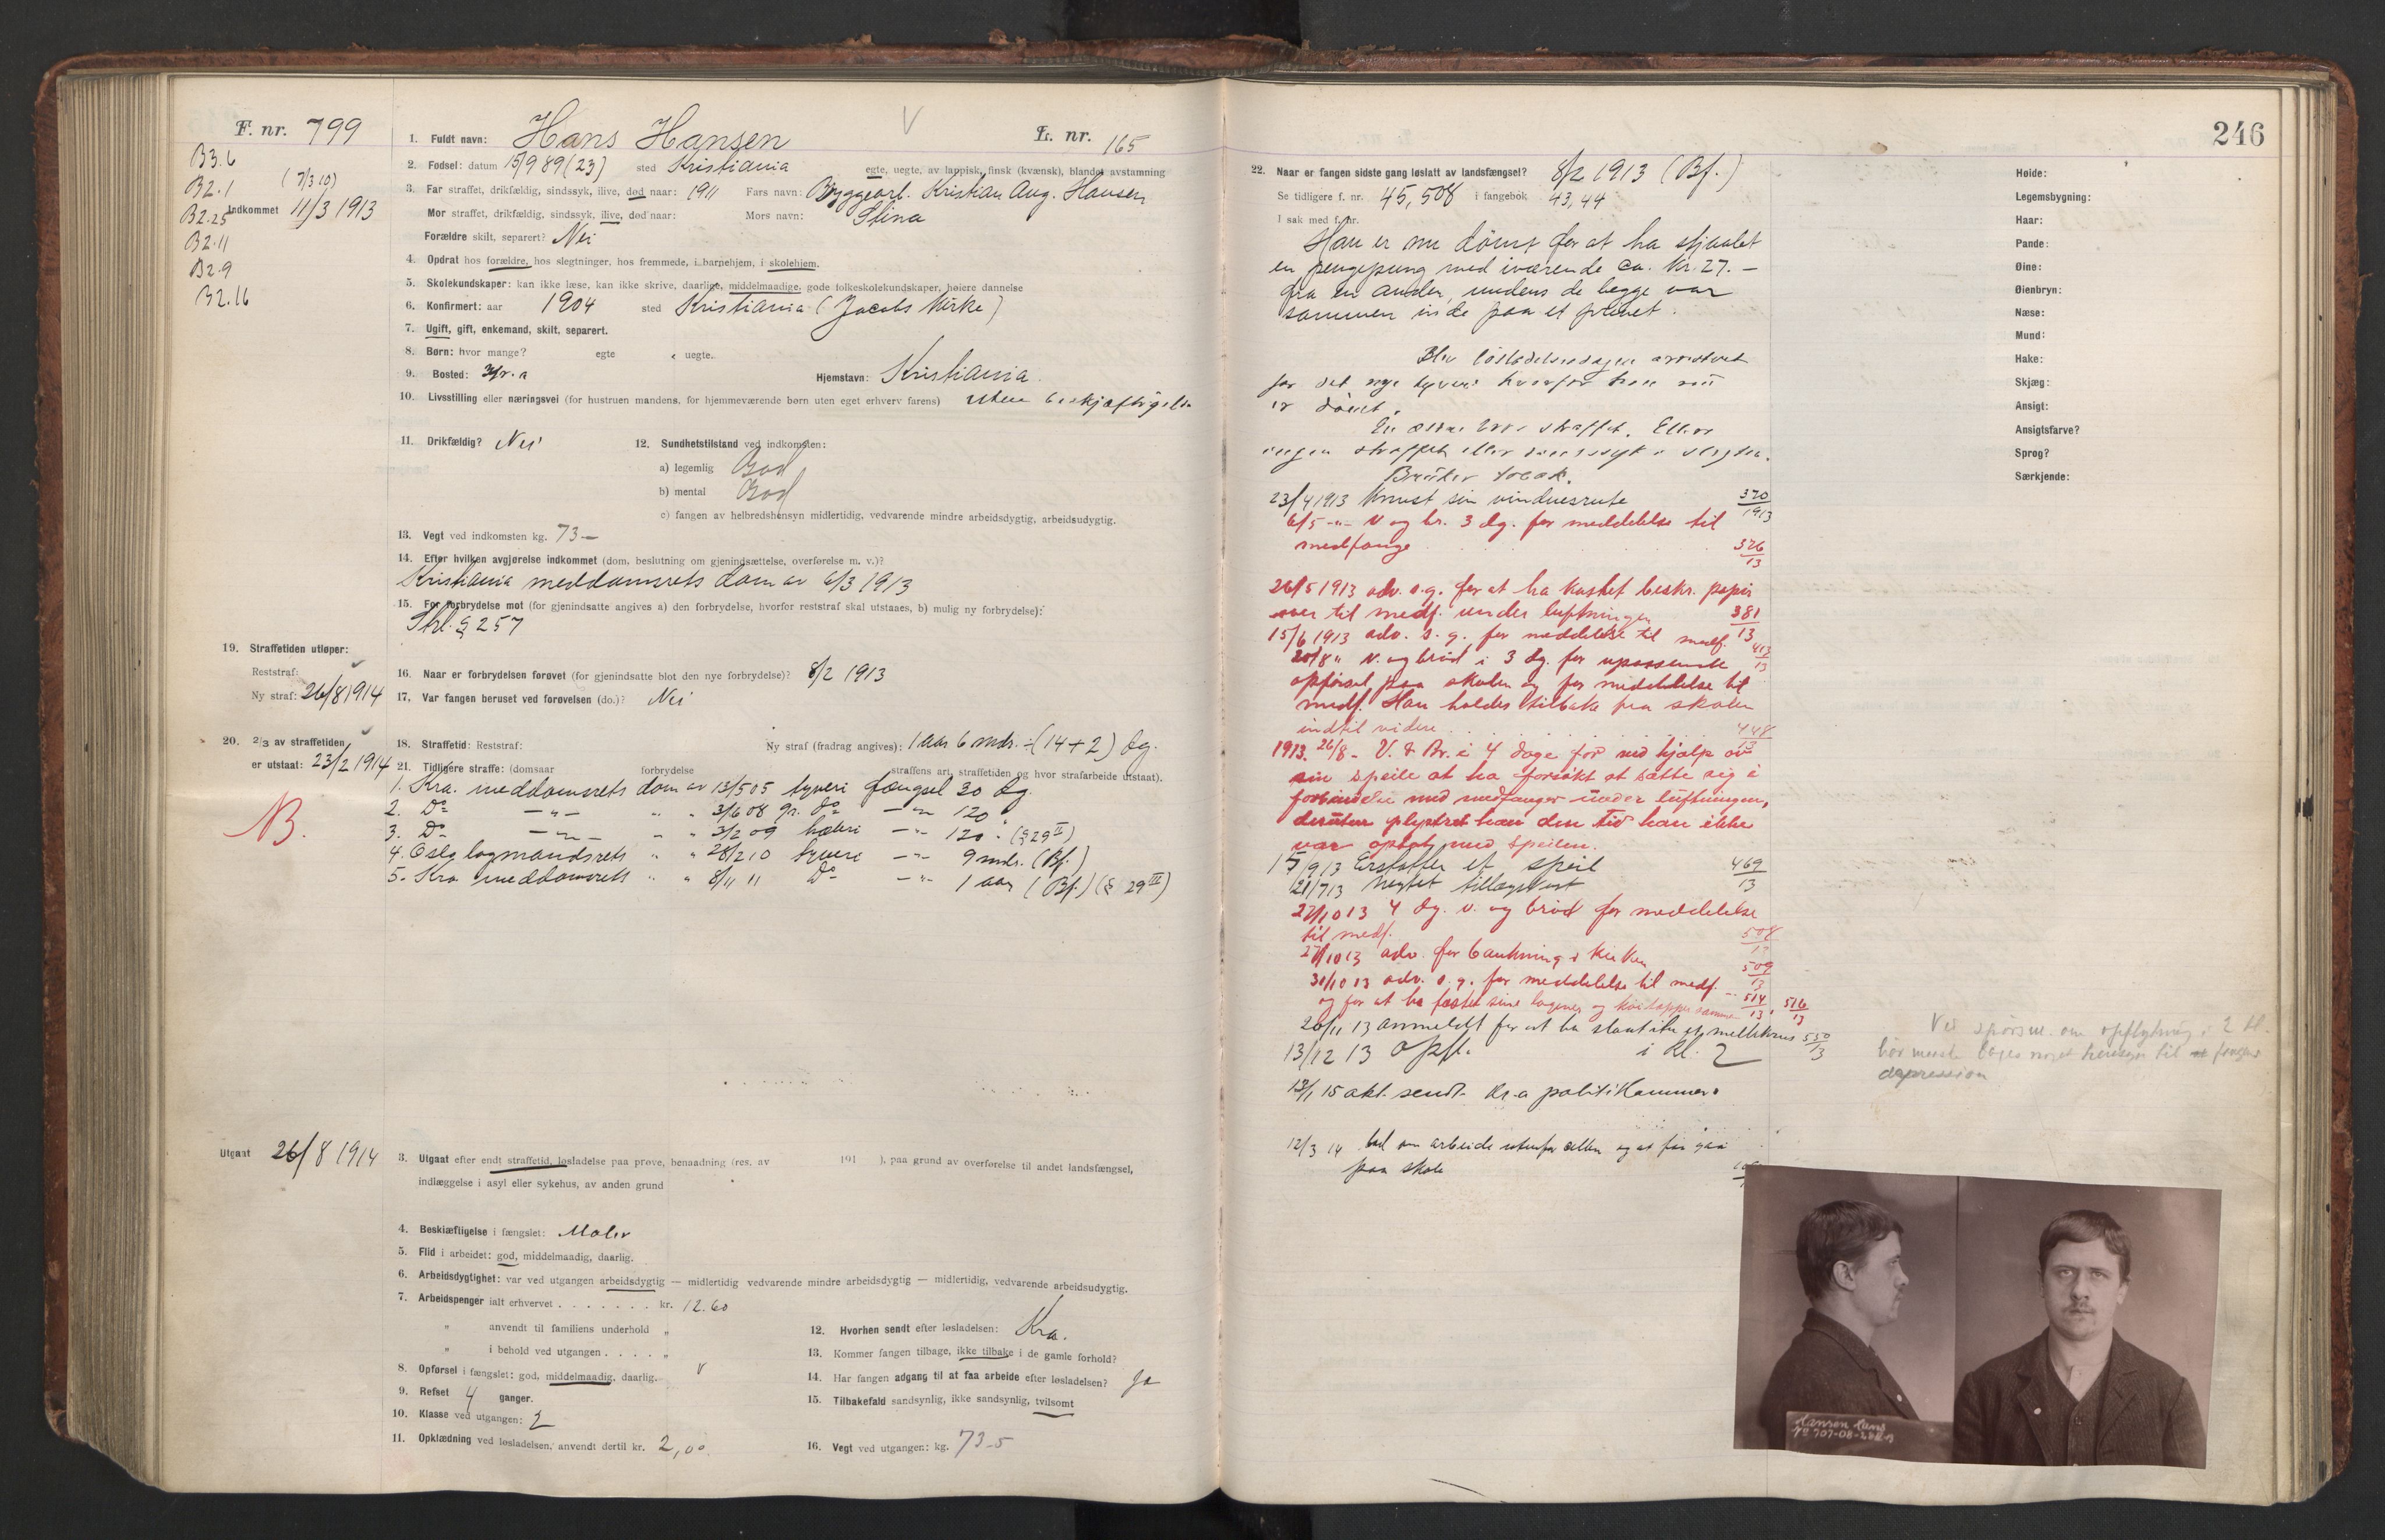 F. nr. 799
B3.6
B2.1 (7/3 10)
B2.25 Indkommet 11/3 1913
B2.11
B2.9
B2.16
1. Fuldt navn: Hans Hansen V L. nr. 165
2. Fødsel: datum 15/9 89 (23) sted Kristiania egte, uegte, av lappisk, finsk (kvænsk), blandet avstamning
3. Far straffet, drikfældig, sindssyk, ilive, død naar: 1911 Fars navn: Byggearb. Kristian Aug. Hansen
Mor straffet, drikfældig, sindssyk, ilive, død naar: Mors navn: Stina
Forældre skilt, separert? Nei
4. Opdrat hos forældre, hos slegtninger, hos fremmede, i barnehjem, i skolehjem.
5. Skolekundskaper: kan ikke læse, kan ikke skrive, daarlige, middelmaadige, gode folkeskolekundskaper, høiere dannelse
6. Konfirmert: aar 1904 sted Kristiania (Jacobs Kirke)
7. Ugift, gift, enkemand, skilt, separert.
8. Børn: hvor mange? egte uegte.
9. Bosted: Kr.a Hjemstavn: Kristiania
10. Livsstilling eller næringsvei (for hustruen mandens, for hjemmeværende børn uten eget erhverv farens) uten beskjæftigelse
11. Drikfældig? Nei 12. Sundhetstilstand ved indkomsten:
a) legemlig God
b) mental God
c) fangen av helbredshensyn midlertidig, vedvarende mindre arbeidsdygtig, arbeidsudygtig.
13. Vegt ved indkomsten kg. 73 —
14. Efter hvilken avgjørelse indkommet (dom, beslutning om gjenindsættelse, overførelse m. v.)?
Kristiania meddomsrets dom av 6/3 1913
15. For forbrydelse mot (for gjenindsatte angives a) den forbrydelse, hvorfor reststraf skal utstaaes, b) mulig ny forbrydelse):
Strl. § 257
19. Straffetiden utløper:
Reststraf:
Ny straf: 26/8 1914
16. Naar er forbrydelsen forøvet (for gjenindsatte blot den nye forbrydelse)? 8/2 1913
17. Var fangen beruset ved forøvelsen (do.)? Nei
20. 2/3 av straffetiden
er utstaat: 23/2 1914
18. Straffetid: Reststraf: Ny straf (fradrag angives): 1 aar 6 mdr. ÷ (14 + 2) dg.
21. Tidligere straffe: (domsaar forbrydelse straffens art, straffetiden og hvor strafarbeide utstaat).
1. Kra. meddomsrets dom av 13/5 05 tyveri fængsel 30 dg.
2. Do — " — " " 3/6 08 gr. do — " — 120 "
3. Do — " — " " 3/2 09 hæleri — " — 120 " (§ 29 II)
4. Oslo lagmandsrets " " 28/2 10 tyveri — " — 9 mdr. (Bf.)
5. Kra meddomsrets " " 8/11 11 Do — " — 1 aar (Bf.) (§ 29 III)
B.
Utgaat 26/8 1914
3. Utgaat efter endt straffetid, løsladelse paa prøve, benaadning (res. av 191 ), paa grund av overførelse til andet landsfængsel,
indlæggelse i asyl eller sykehus, av anden grund
4. Beskjæftigelse i fængslet: Maler
5. Flid i arbeidet: god, middelmaadig, daarlig.
6. Arbeidsdygtighet: var ved utgangen arbeidsdygtig — midlertidig vedvarende mindre arbeidsdygtig — midlertidig, vedvarende arbeidsudygtig.
7. Arbeidspenger ialt erhvervet . . . . . . . kr. 12.60
" anvendt til familiens underhold "
" i behold ved utgangen . . . . "
8. Opførsel i fængslet: god, middelmaadig, daarlig. V
9. Refset 4 ganger.
10. Klasse ved utgangen: 2
11. Opklædning ved løsladelsen, anvendt dertil kr. 2,00
12. Hvorhen sendt efter løsladelsen: Kra.
13. Kommer fangen tilbage, ikke tilbake i de gamle forhold?
14. Har fangen adgang til at faa arbeide efter løsladelsen? Ja
15. Tilbakefald sandsynlig, ikke sandsynlig, tvilsomt
16. Vegt ved utgangen: kg. 73.5
246
22. Naar er fangen sidste gang løslatt av landsfængsel? 8/2 1913 (Bf.)
Se tidligere f. nr. 45, 508 i fangebok 43, 44
I sak med f. nr.
Han er nu dømt for at ha stjaalet
en pengepung med iværende ca. Kr. 27. —
fra en anden, mens de begge var
sammen inde paa et privet.
Blev løsladelsesdagen arrestert
for det nye tyveri hvorfor han nu
er dømt.
straffet. Ellers
ingen straffet eller sindssyk i slegten.
Bruker tobak.
23/4 1913 Knust sin vinduesrute 370/1913
6/5 — " — V og br. 3 dg. for meddelelse til
medfange . . . 376/13
26/5 1913 adv. s.g. for at ha kastet beskr. papir
over til medf. under luftningen 381/13
15/6 1913 adv. s. g. for meddelelse til medf. 413/13
20/8 " V. og brød i 3 dg. for upassende
opførsel paa skolen og for meddelelse til
medf. Han holdes tilbake fra skolen
indtil videre . . . 448/13
1913. 26/8 - V. & Br. i 4 dage for ved hjælp av
sin speile at ha forsøkt at sætte sig i
forbindelse med medfanger under luftningen,
desuten plystret han den tid han ikke
var optat med speilen.
15/9 13 Erstatter et speil 469/13
21/7 13 Negtet tillægskost
27/10 13 4 dg. v. og brød for meddelelse
til medf. 508/13
27/10 13 adv. for bankning i kirken 509/13
31/10 13 adv. s. g. for meddelelse til medf. 514/13, 516/13
og for at ha fæstet sine og sammen
20/11 13 anmeldt for at ha slaat itu et melkekrus 550/13
13/12 13 Opfl. i Kl. 2
13/1 15 akt. sendt Kr.a politikammer.
12/3 14 bad om arbeide utenfor cellen og at faa gaa
paa skole
Høide:
Legemsbygning:
Haar:
Pande:
Øine:
Øienbryn:
Næse:
Mund:
Hake:
Skjæg:
Ansigt:
Ansigtsfarve?
Sprog?
Særkjende:
Ved spørsm. om opflytning i 2 kl.
bør tages noget hensyn til fangens
depression
Hansen Hans